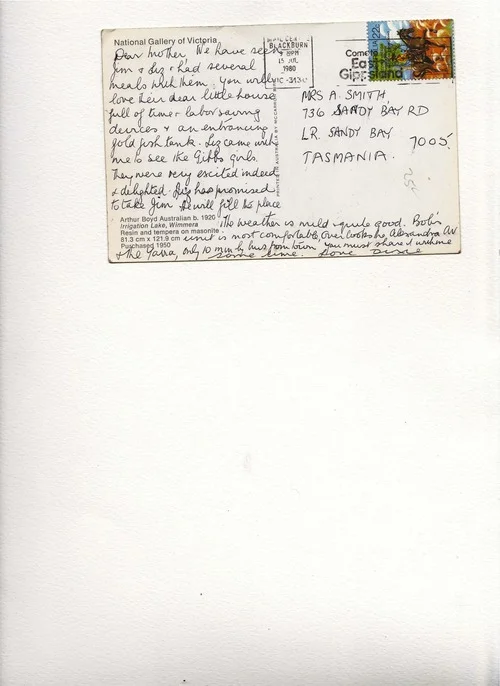 National Gallery of Victoria
Dear Mother, We have seen
Jim & Liz & had several
meals with them. You will
love their dear little house
full of time & labor saving
devices & an entrancing
gold fish tank. Liz came with
me to see the Gibbs girls.
They were very excited indeed
& delighted. Liz has promised
to take Jim. He will fill the place
The weather is mild & quite good. Bob's
unit is most comfortable overlooks Alexandra Av
& the Yarra, only 10 min by bus from town you must share it with me
some time. Love
Arthur Boyd Australian b. 1920
Irrigation Lake, Wimmera
Resin and tempera on masonite
81.3 cm x 121.9 cm
Puschased 1950
BLACKBURN
6 PM
15 JUL
1980
VIC-3130
Come to
East
Gippsland
22c
MRS A. SMITH,
736 SANDY BAY RD
LR. SANDY BAY
7005.
TASMANIA.
25c